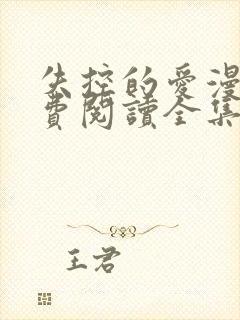 失控的愛漫
費閱讀全集
王君